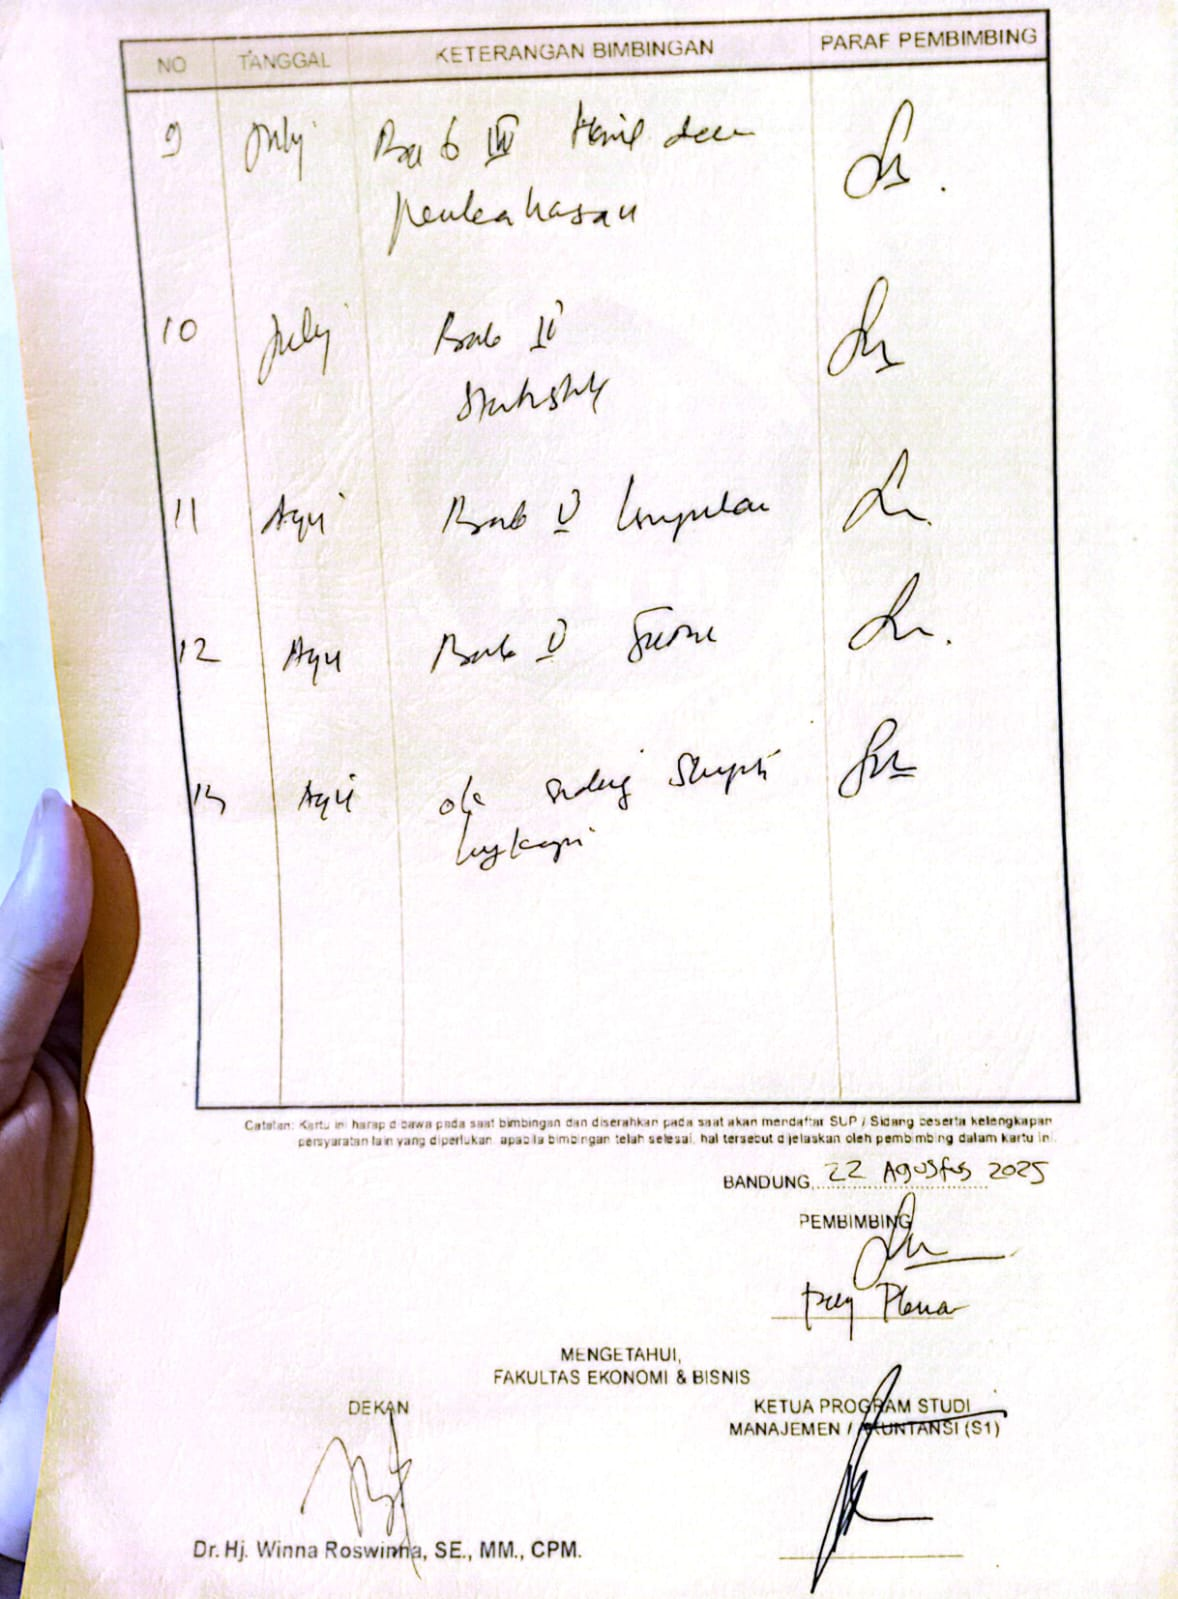 NO TANGGAL KETERANGAN BIMBINGAN PARAF PEMBIMBING
9 July Bab IV Hasil dan
pembahasan
10 July Bab IV
Statistik
11 Agu Bab V
12 Agu Bab V Saran
13 Agu ok sidang Skripsi
lengkapi
Catatan: Kartu ini harap dibawa pada saat bimbingan dan diserahkan pada saat akan mendaftar SUP / Sidang beserta kelengkapan
persyaratan lain yang diperlukan, apabila bimbingan telah selesai, hal tersebut dijelaskan oleh pembimbing dalam kartu ini.
BANDUNG, 22 Agustus 2025
PEMBIMBING
MENGETAHUI,
FAKULTAS EKONOMI & BISNIS
DEKAN
KETUA PROGRAM STUDI
MANAJEMEN / AKUNTANSI (S1)
Dr. Hj. Winna Roswinna, SE., MM., CPM.